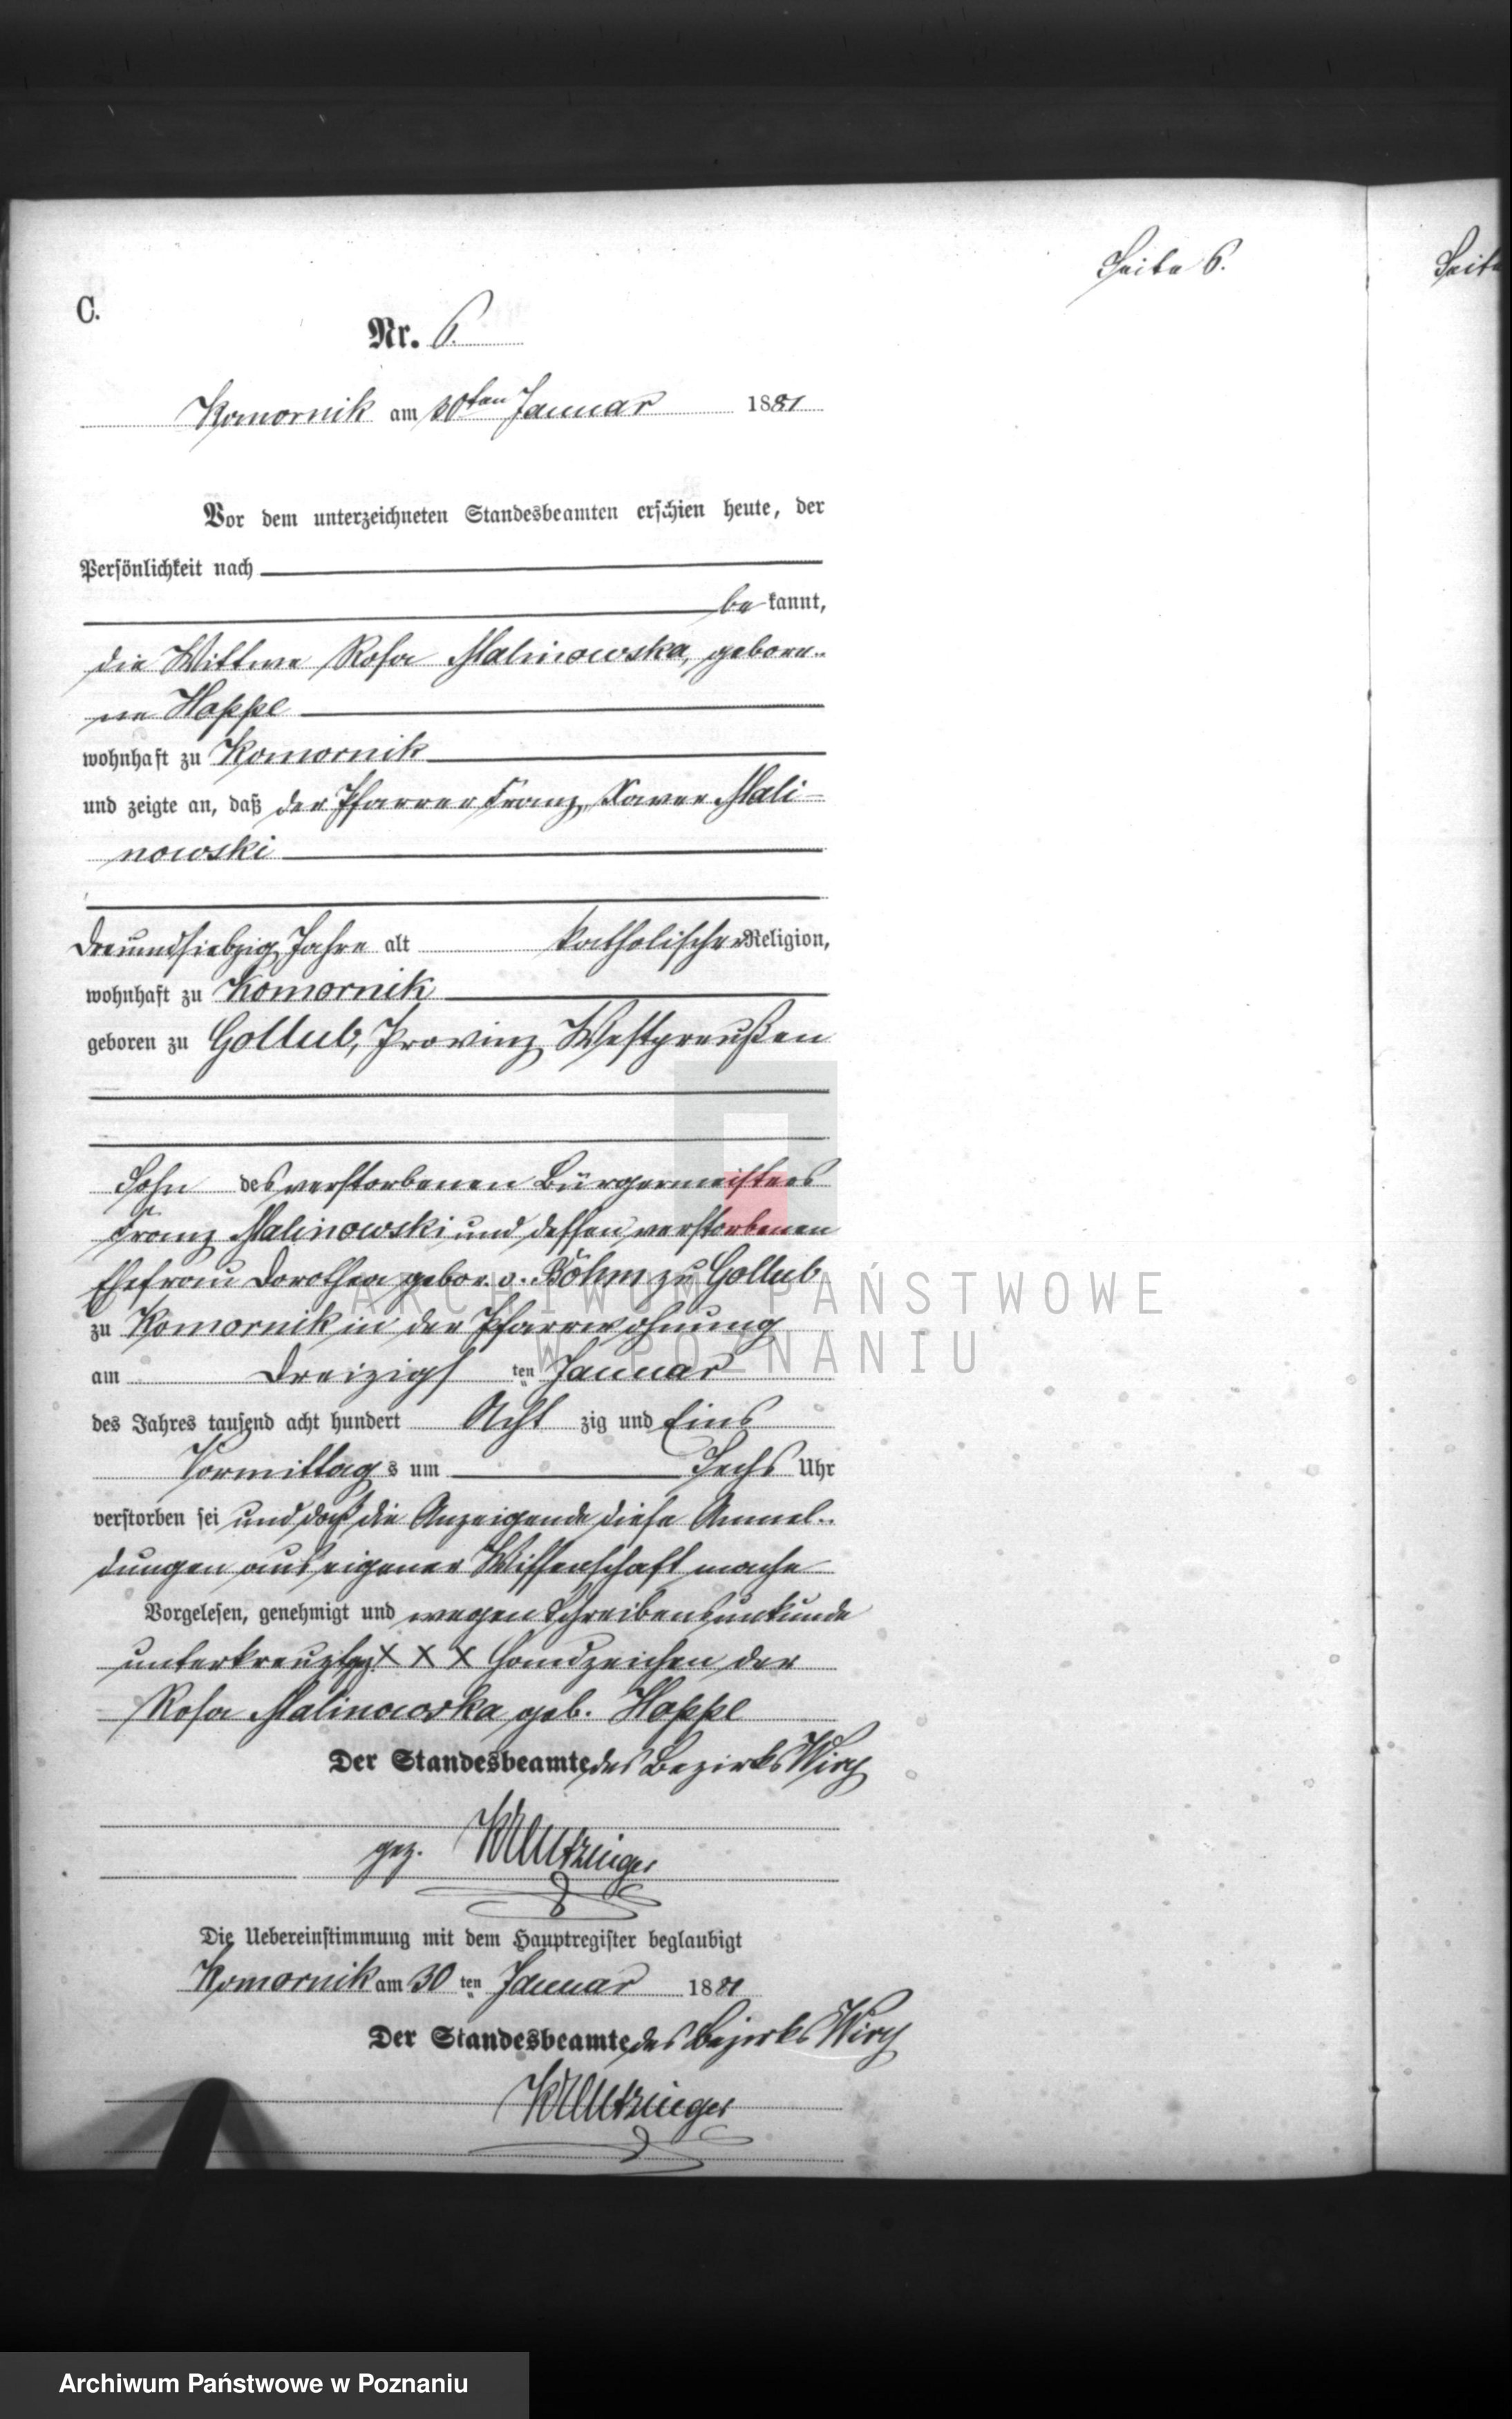 Seite 6.
Seite
C.
Nr. 6.
Komornik am 30ten Januar 1881
Vor dem unterzeichneten Standesbeamten erschien heute, der
Persönlichkeit nach
be kannt,
die Wittwe Rosa Malinowska, gebore-
ne Hoppe
wohnhaft zu Komornik
und zeigte an, daß der Pfarrer Franz Xaver Mali-
nowski
Dreiundsiebzig Jahre alt katholischer Religion,
wohnhaft zu Komornik
geboren zu Gollub, Provinz Westpreußen
Sohn des verstorbenen Bürgermeisters
Franz Malinowski und dessen verstorbenen
Ehefrau Dorothea gebor. v. Böhm zu Gollub
zu Komornik in der Pfarrwohnung
am Dreizigs ten Januar
des Jahres tausend acht hundert Acht zig und Eins
Vormittag s um Sechs Uhr
verstorben sei und daß die Anzeigende diese Anmel-
dungen aus eigener Wissenschaft mache
Vorgelesen, genehmigt und wegen Schreibensunkunde
unterkreuzt X X X Handzeichen der
Rosa Malinowska geb. Hoppe
Der Standesbeamte des Bezirks Wiry
gez. Kreutzinger
Die Uebereinstimmung mit dem Hauptregister beglaubigt
Komornik am 30 ten Januar 1881
Der Standesbeamte des Bezirks Wiry
Kreutzinger
ARCHIWUM PAŃSTWOWE
W POZNANIU
Archiwum Państwowe w Poznaniu